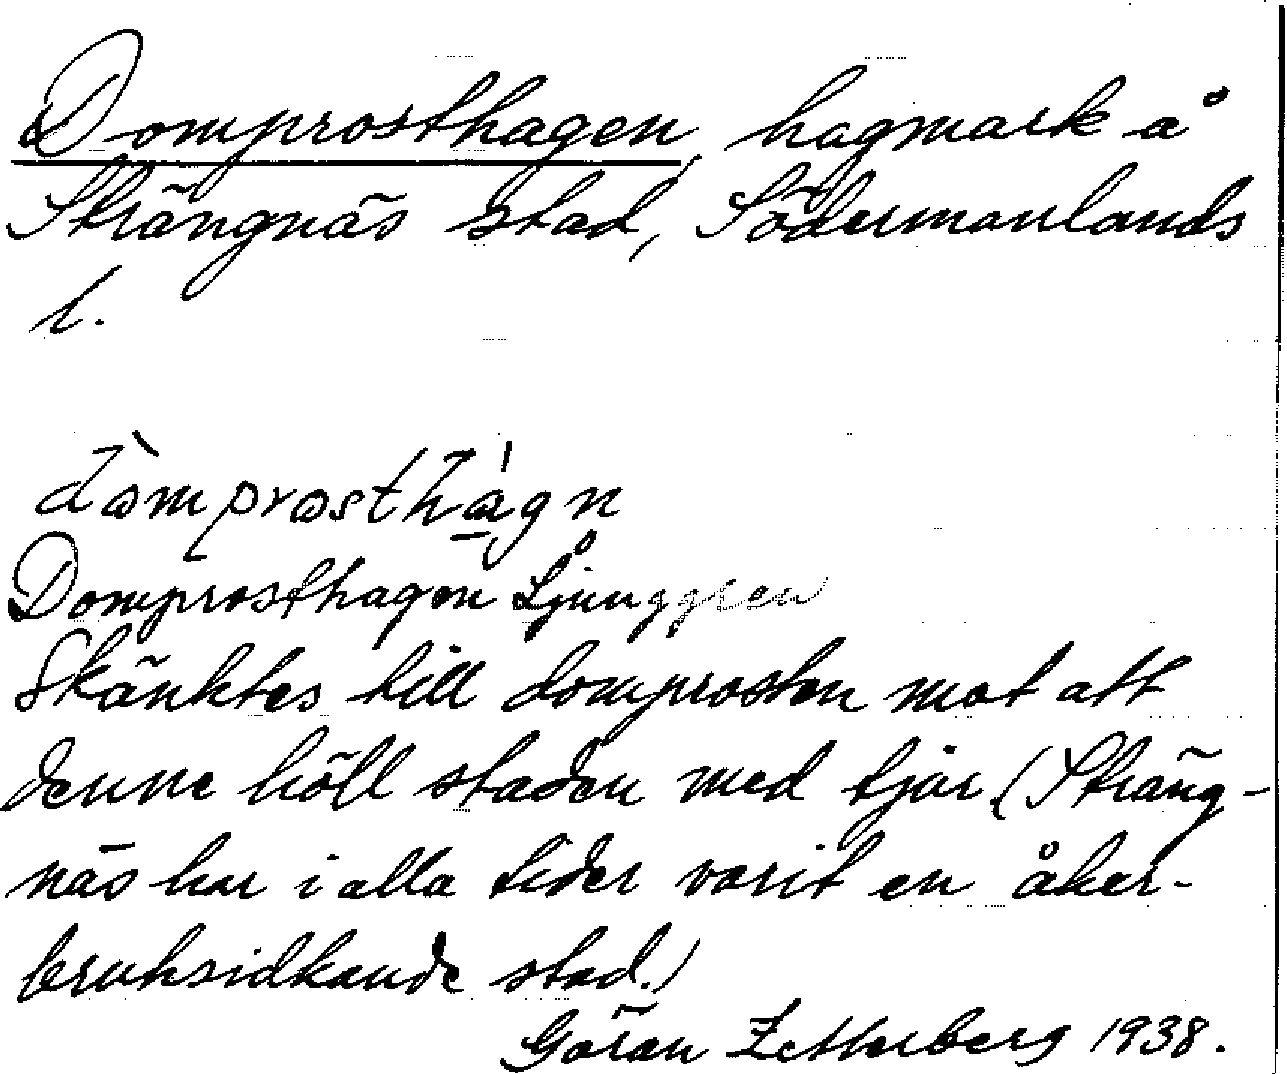 Domprosthagen, hagmark å
Strängnäs stad, Södermanlands
l.
dòmprosthágn
Domprosthagen Ljunggren
Skänktes till domprosten mot att
denne höll staden med tjur (Sträng-
näs har i alla tider varit en åker-
bruksidkande stad.)
Göran Zetterberg 1938.